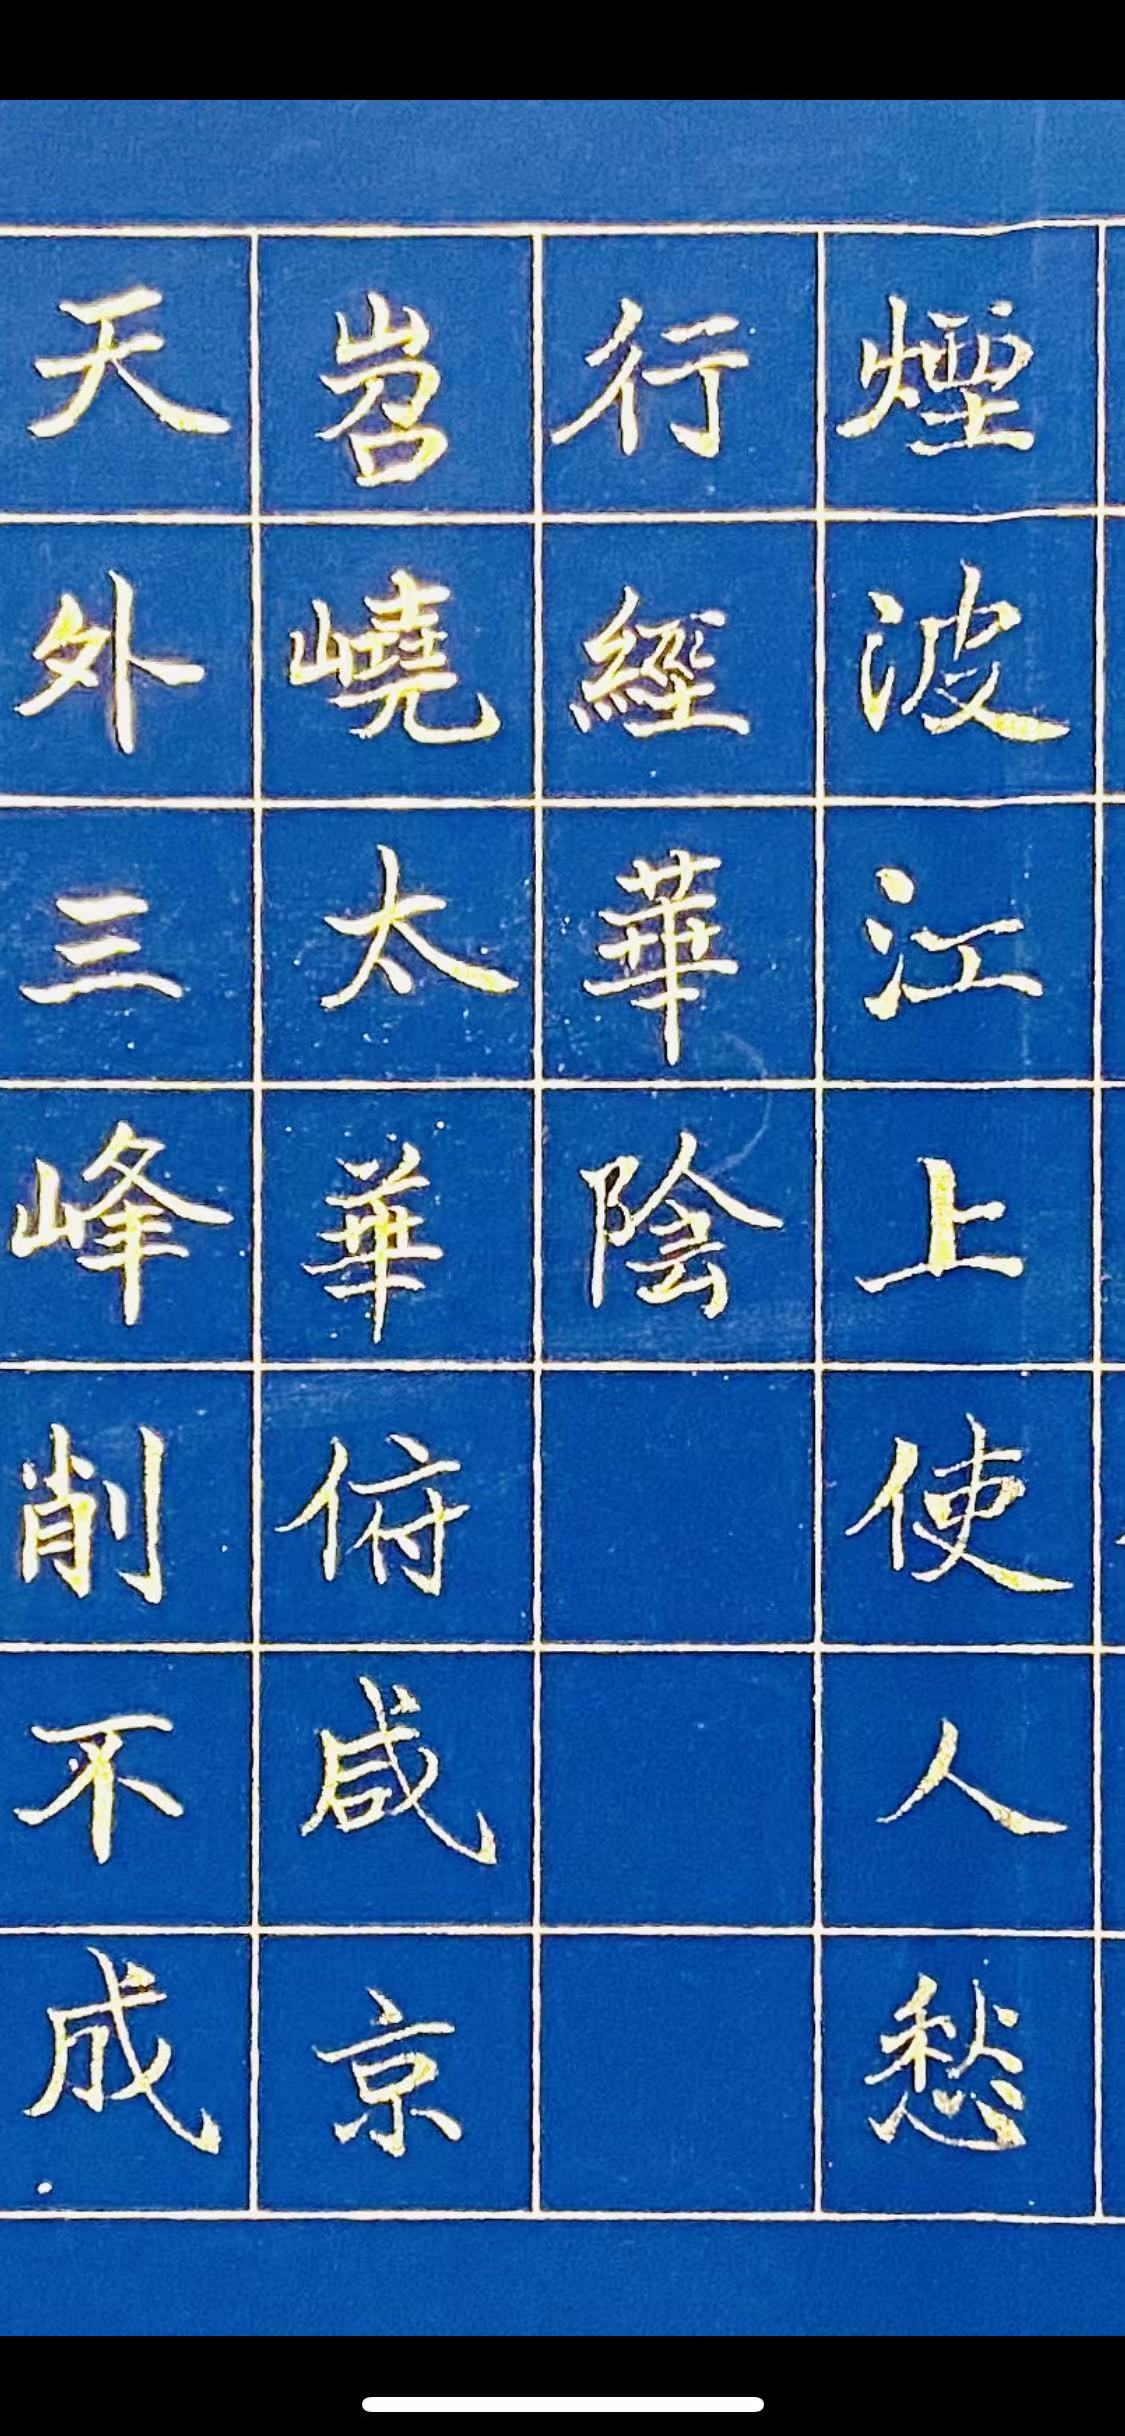 煙波江上使人愁
行經華陰
岧嶢太華俯咸京
天外三峰削不成